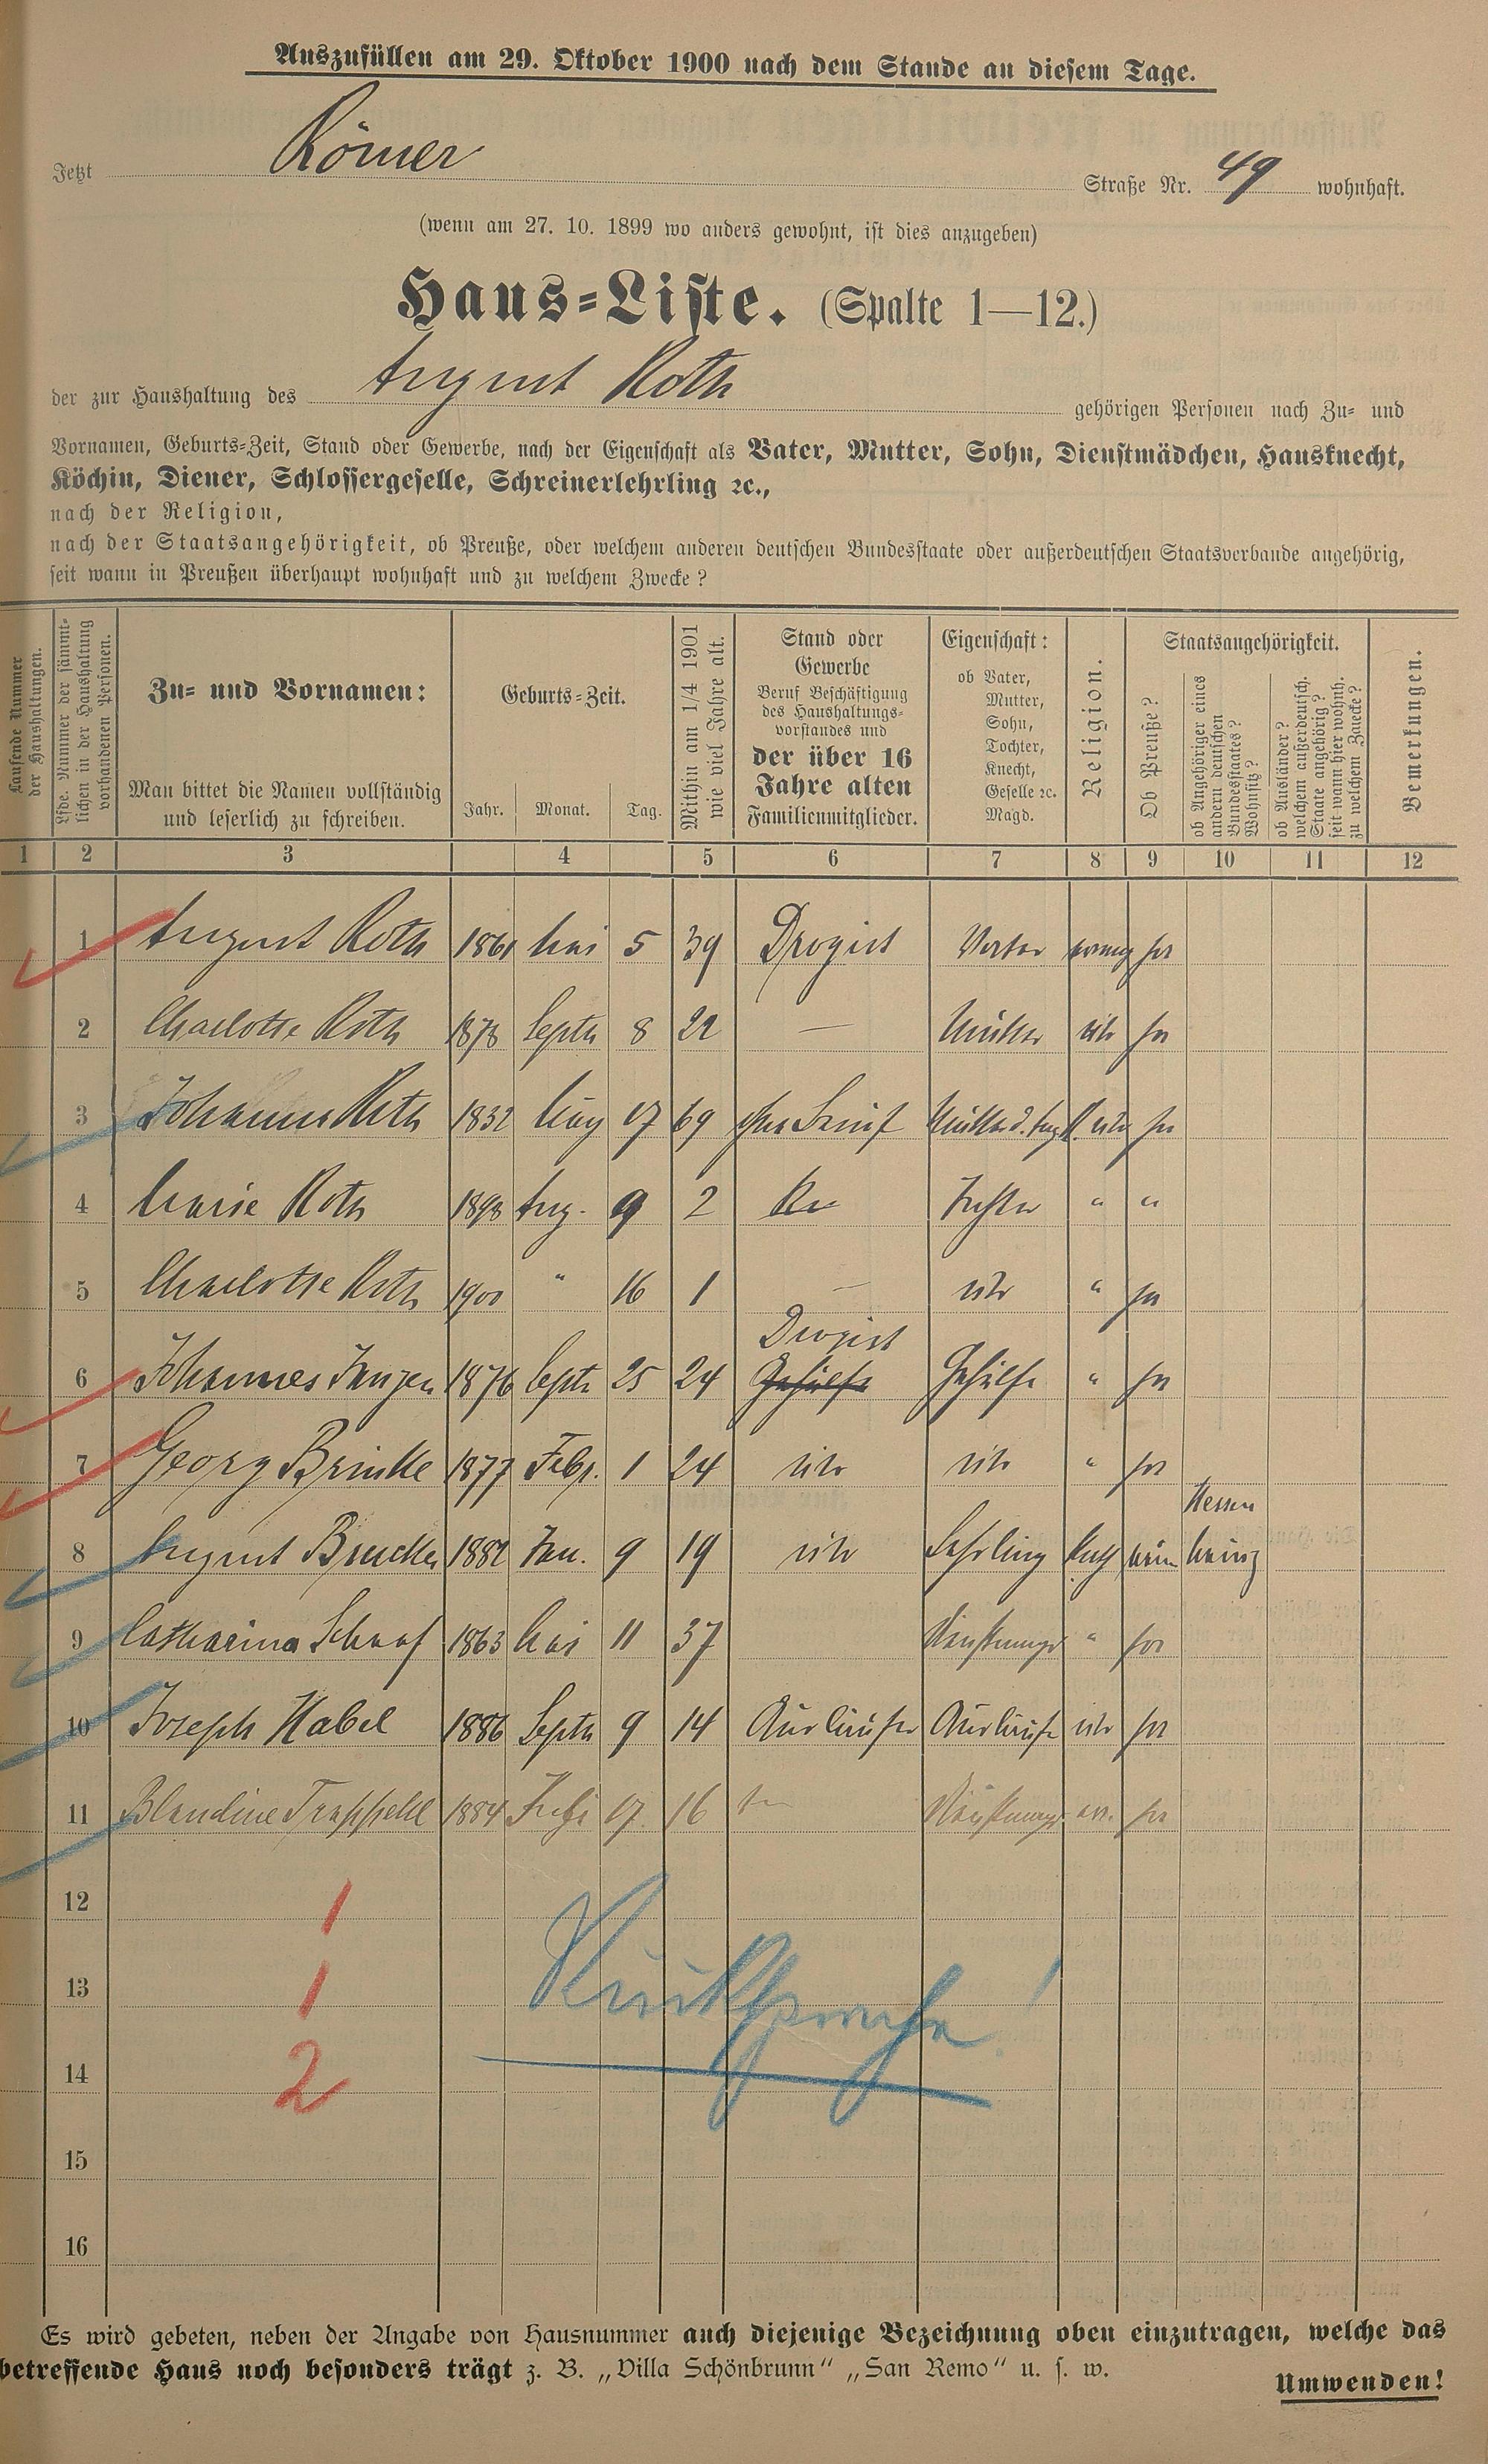 Auszufüllen am 29. Oktober 1900 nach dem Stande an diesem Tage.
Jetzt Römer Straße Nr. 49 wohnhaft.
(wenn am 27. 10. 1899 wo anders gewohnt, ist dies anzugeben)
Haus=Liste. (Spalte 1—12.)
der zur Haushaltung des August Roth gehörigen Personen nach Zu= und
Vornamen, Geburts=Zeit, Stand oder Gewerbe, nach der Eigenschaft als Vater, Mutter, Sohn, Dienstmädchen, Hausknecht,
Köchin, Diener, Schlossergeselle, Schreinerlehrling ꝛc.,
nach der Religion,
nach der Staatsangehörigkeit, ob Preuße, oder welchem anderen deutschen Bundesstaate oder außerdeutschen Staatsverbande angehörig,
seit wann in Preußen überhaupt wohnhaft und zu welchem Zwecke?
Laufende Nummer
der Haushaltungen.
Lfde. Nummer der sämmt=
lichen in der Haushaltung
vorhandenen Personen.
Zu= und Vornamen:
Man bittet die Namen vollständig
und leserlich zu schreiben.
Geburts=Zeit.
Jahr. Monat. Tag.
Mithin am 1/4 1901
wie viel Jahre alt.
Stand oder
Gewerbe
Beruf Beschäftigung
des Haushaltungs=
vorstandes und
der über 16
Jahre alten
Familienmitglieder.
Eigenschaft:
ob Vater,
Mutter,
Sohn,
Tochter,
Knecht,
Geselle ꝛc.
Magd.
Religion.
Staatsangehörigkeit.
Ob Preuße?
ob Angehöriger eines
andern deutschen
Bundesstaates?
Wohnsitz?
ob Ausländer?
welchem außerdeutsch.
Staate angehörig?
seit wann hier wohnh.
zu welchem Zwecke?
Bemerkungen.
1 2 3 4 5 6 7 8 9 10 11 12
1 August Roth 1861 Mai 5 39 Drogist Vater evang ja
2 Charlotte Roth 1878 Septb 8 22 — Mutter ja
3 Johanna Roth 1832 17 69 Mutter d. Aug R. ja
4 Marie Roth 1898 Aug. 9 2 Tochter " "
5 Charlotte Roth 1900 " 16 1 — " ja
Drogist
6 Johannes Janzen 1876 Septb 25 24 Gehülfe Gehülfe " ja
7 Georg Brinkle 1877 Febr. 1 24 " ja
Hessen
8 August Bruckler 1882 Jan. 9 19 Lehrling Kath kein Mainz
9 Catharina Schaaf 1863 Mai 11 37 " ja
10 Joseph Habel 1886 Septb 9 14 Ausläufer Ausläufer ja
11 Blandine Trappehl 1884 17 16 ja
12 1
13 1
Rücksprache!
14 2
15
16
Es wird gebeten, neben der Angabe von Hausnummer auch diejenige Bezeichnung oben einzutragen, welche das
betreffende Haus noch besonders trägt z. B. „Villa Schönbrunn“ „San Remo“ u. s. w.
Umwenden!